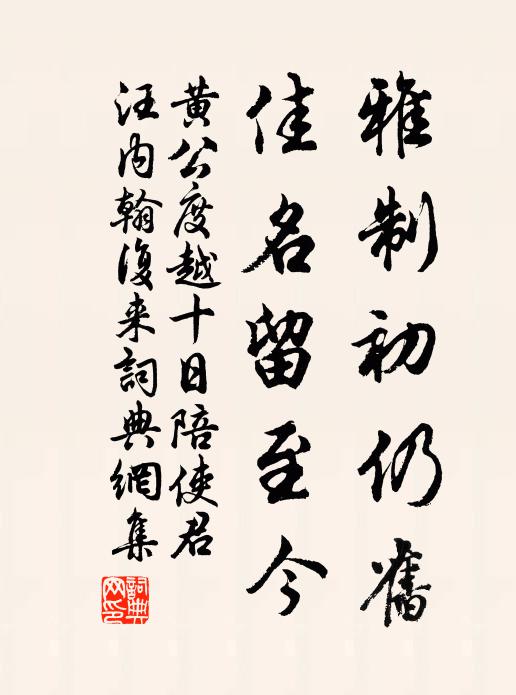 雅制初仍舊
佳名留至今
黃公度越十日陪使君
汪內翰復来詞典網集
詞典網印